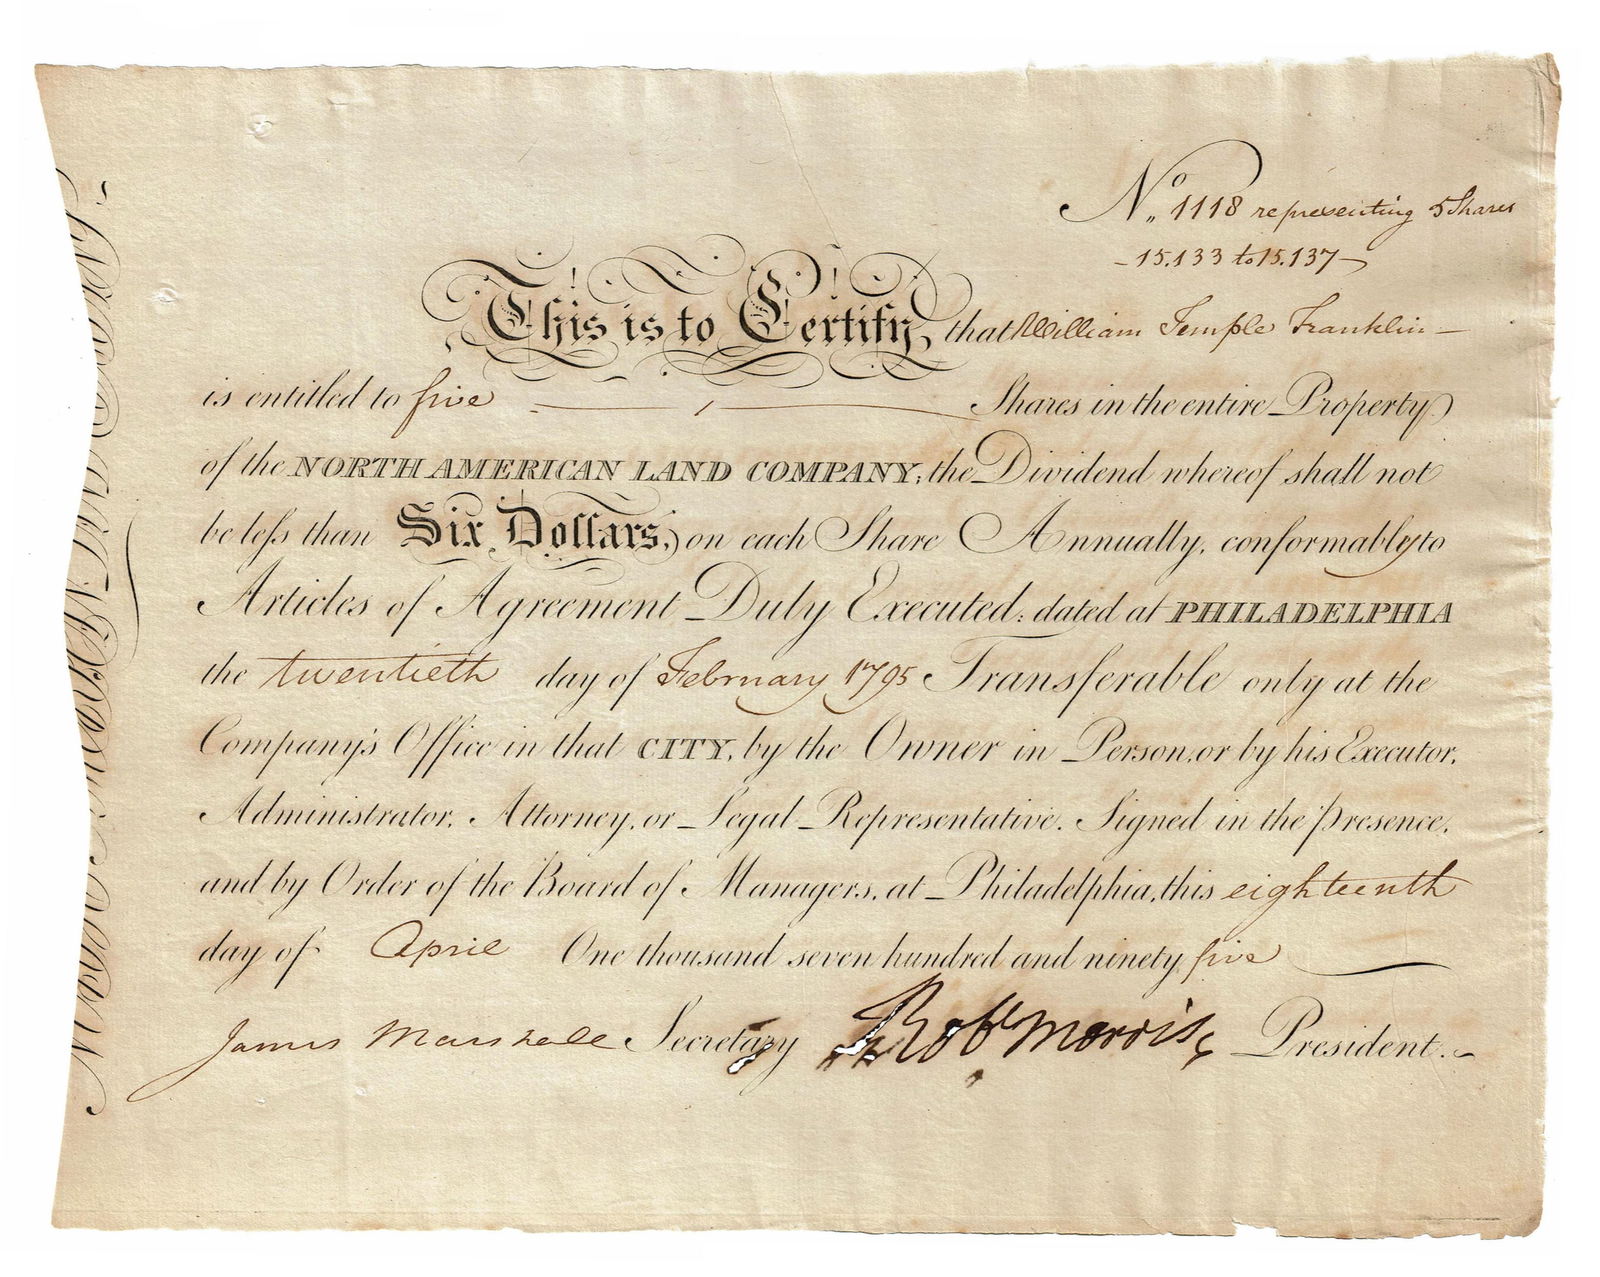 No. 1118 representing 5 Shares
15.133 to 15.137
This is to Certify, that William Temple Franklin
is entitled to five Shares in the entire Property
of the NORTH AMERICAN LAND COMPANY; the Dividend whereof shall not
be less than Six Dollars, on each Share Annually, conformably to
Articles of Agreement Duly Executed; dated at PHILADELPHIA
the twentieth day of February 1795 Transferable only at the
Company's Office in that CITY, by the Owner in Person, or by his Executor,
Administrator, Attorney, or Legal Representative. Signed in the presence,
and by Order of the Board of Managers, at Philadelphia, this eighteenth
day of April One thousand seven hundred and ninety five
James Marshall Secretary Robt Morris President.